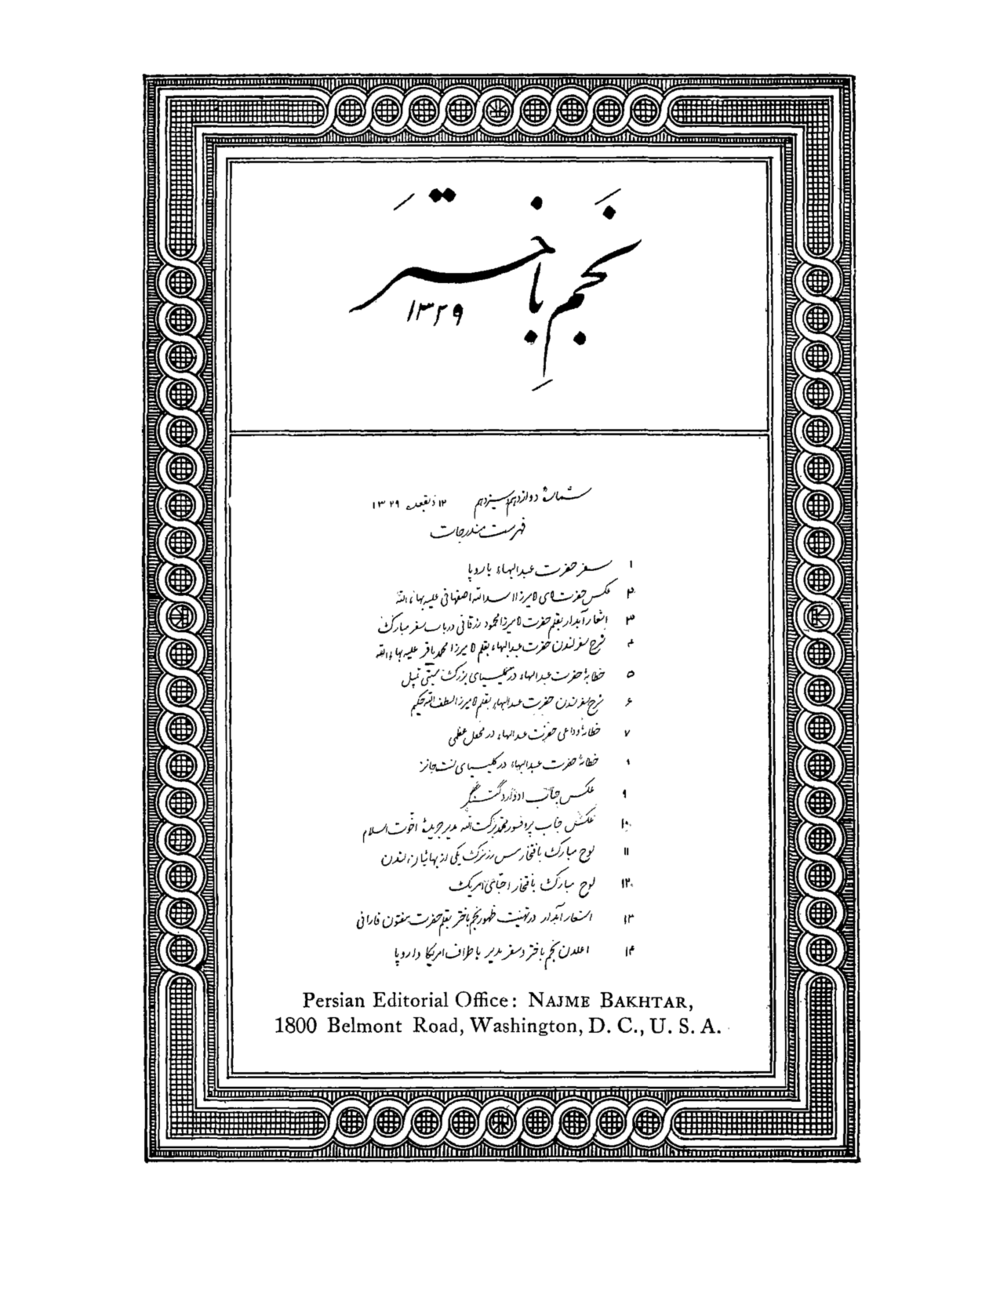 نَجم باختَر
۱۳۲۹
شمارهٔ دوازدهم سیزدهم ۱۲ ذیقعده ۱۳۲۹
فهرست مندرجات
۱ سفر حضرت عبدالبهاء باروپا
۲ عکس حضرت میرزا اسدالله اصفهانی علیه بهاءالله
۳ اشعار آبدار بقلم حضرت میرزا محمود زرقانی در باب سفر مبارک
۴ شرح سفر لندن حضرت عبدالبهاء بقلم میرزا محمد باقر علیه بهاءالله
۵ خطابهٔ حضرت عبدالبهاء در کلیسیای بزرگ سیتی تمپل
۶ شرح سفر لندن حضرت عبدالبهاء بقلم میرزا لطف الله حکیم
۷ خطابهٔ وداعی حضرت عبدالبهاء در محفل عظمی
۸ خطابهٔ حضرت عبدالبهاء در کلیسیای سنت جانز
۹ عکس جناب ادوارد گتسنگر
۱۰ عکس جناب پروفسور محمد برکت الله مدیر جریدهٔ اخوت اسلام
۱۱ لوح مبارک بافتخار مس رزنبرگ یکی از بهائیان لندن
۱۲ لوح مبارک بافتخار احبای امریک
۱۳ اشعار آبدار در تهنیت ظهور نجم باختر بقلم حضرت مفتون فارانی
۱۴ اعلان نجم باختر و سفر مدیر باطراف امریکا و اروپا
Persian Editorial Office: NAJME BAKHTAR,
1800 Belmont Road, Washington, D. C., U. S. A.